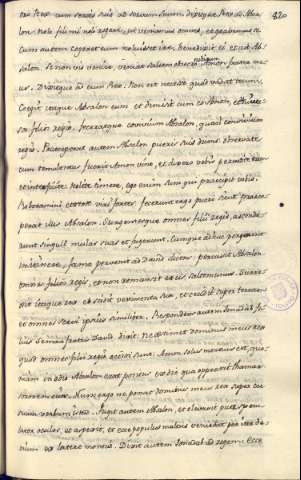 420
niat Rex cum servis suis ad servum suum. Dixitque Rex ad Absa-
lon. Noli fili mi noli rogare, ut veniamus omnes, et gravemus te.
Cum autem cogeret eum et noluisset ire, benedixit ei. Et ait Ab-
salon. Si non vis venire, veniat saltem obsecro nobiscum Amon frater me-
us. Dixitque ad eum Rex. Non est necesse quod vadat tecum.
Coegit itaque Absalon eum et dimisit cum eo Amon, et univer-
sos filios regis, feceratque convivium Absalon, quasi convivium
regis. Praeceperat autem Absalon pueris suis dicens. Observate
cum temulentus fuerit Amon vino, et dixero vobis percutite eum
et interficite. Nolite timere, ego enim sum qui praecipio vobis.
Roboramini et estote viri fortes. Fecerunt ergo pueri sicut praece-
perat illis Absalon. Surgentesque omnes filii regis, ascende-
runt singuli mulas suas et fugerunt. Cumque adhuc pergerent
in itinere, fama pervenit ad David dicens. Percussit Absalon
omnes filios regis, et non remansit ex eis saltem unus. Surre-
xit itaque rex et scidit vestimenta sua, et cecidit super terram
et omnes servi ipsius similiter. Respondens autem Ionadab fi-
lius Semma fratris David dixit. Ne aestimet dominus meus rex
quod omnes filii regis occisi sunt. Amon solus mortuus est, quo-
niam in odio Absalon erat positus ex die qua oppressit Thamar
sororem eius. Nunc ergo ne ponat dominus meus rex super cor
suum verbum istud. Fugit autem Absalon, et elevavit puer specu-
lator oculos, et aspexit, et ecce populus multus veniebat per iter de-
vium ex latere montis. Dixit autem Ionadab ad regem. Ecce